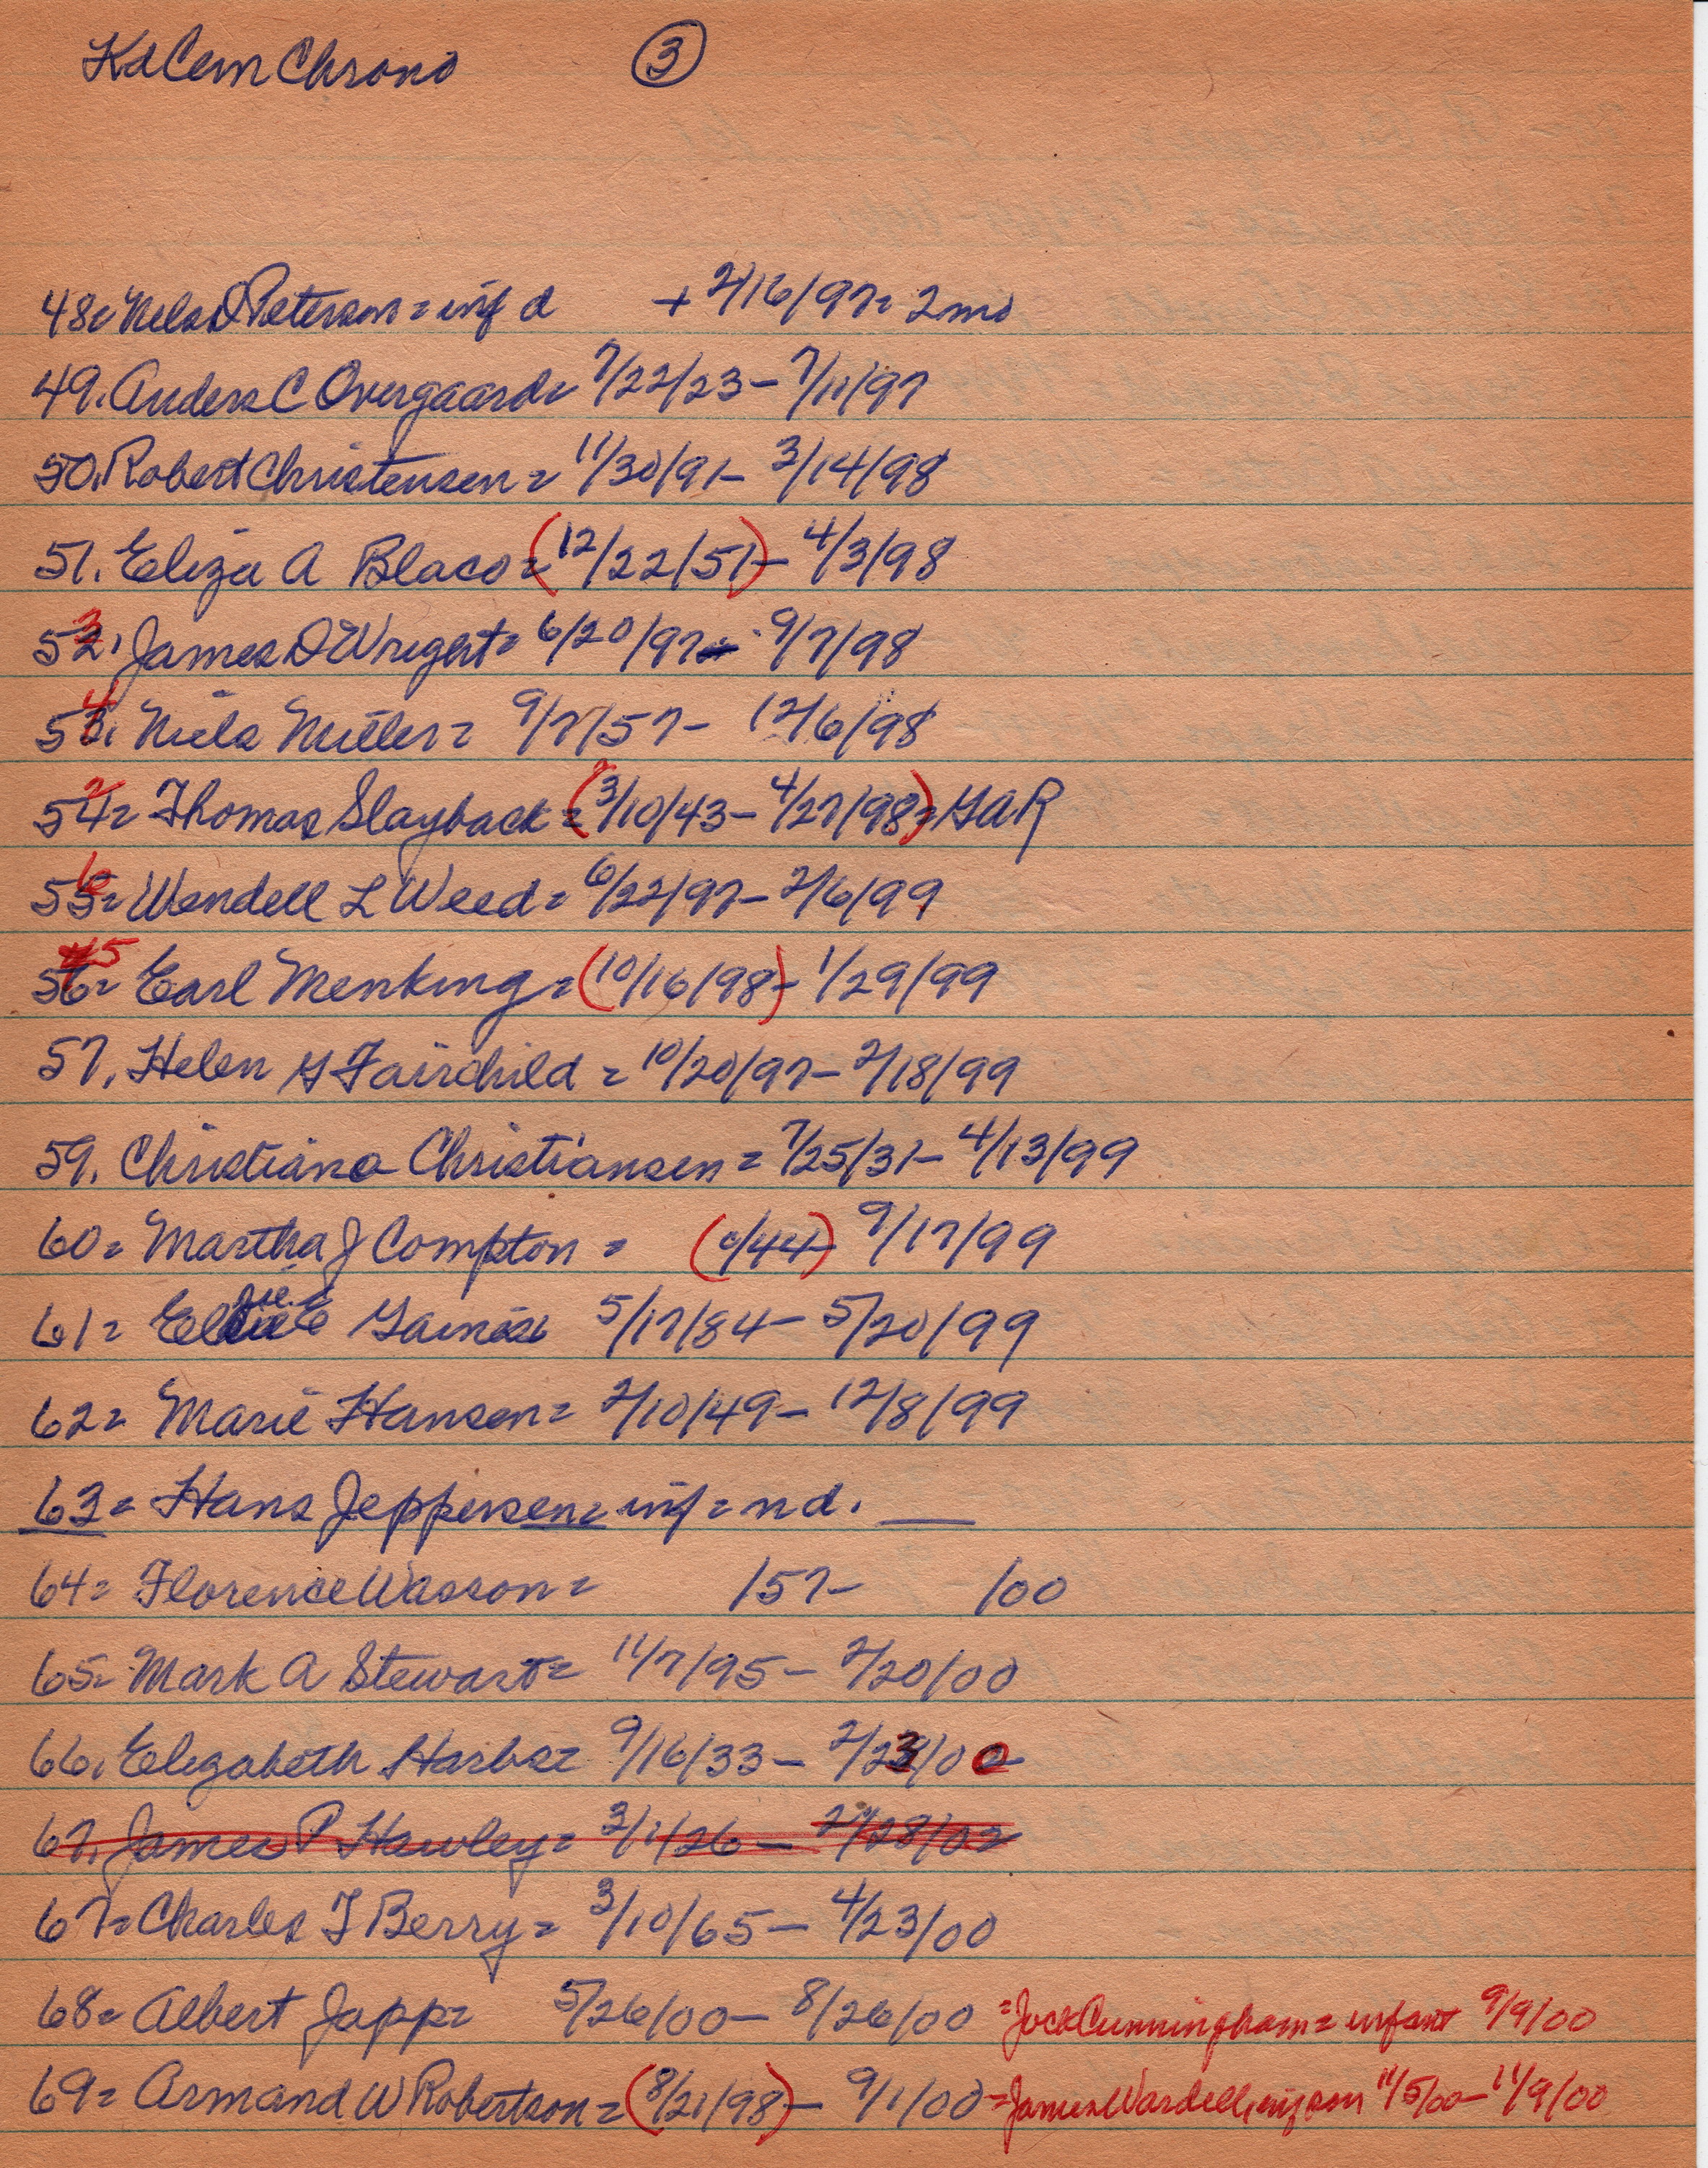 Kd Cem Chrono ③
48= Nels D Peterson = inf d + 2/16/97= 2mo
49. Anders C Overgaard= 7/22/23 - 7/11/97
50. Robert Christensen = 11/30/91 - 3/14/98
51. Eliza A Blaco = (12/22/51) - 4/3/98
53. James D Wright= 6/20/97 - 9/7/98
54. Niels Miller = 9/7/57 - 12/6/98
52= Thomas Slayback = (3/10/43 - 4/27/98) = GAR
56= Wendell L Weed = 6/22/97 - 2/6/99
55= Earl Menking = (10/16/98) - 1/29/99
57. Helen G Fairchild = 10/20/97 - 2/18/99
59. Christiana Christiansen = 7/25/31 - 4/13/99
60= Martha J Compton = ( /44) 9/17/99
61= E 5/17/84 - 5/20/99
62= Marie Hansen= 2/10/49 - 12/8/99
63= Hans Jeppersen= inf = nd. __
64= Florence Wasson = /57- /00
65= Mark A Stewart= 11/7/95 - 2/20/00
66. Elizabeth Harbs= 9/16/33 - 2/23/00
67. James P Hawley= 3/1/26 - 2/28/02
67= Charles F Berry = 3/10/65 - 4/23/00
68= Albert Japp= 5/26/00 - 8/26/00 = Jock Cunningham = infant 9/9/00
69= Armand W Robertson = (8/21/98) - 9/1/00 = James Wardell, inf son 11/5/00 - 11/9/00